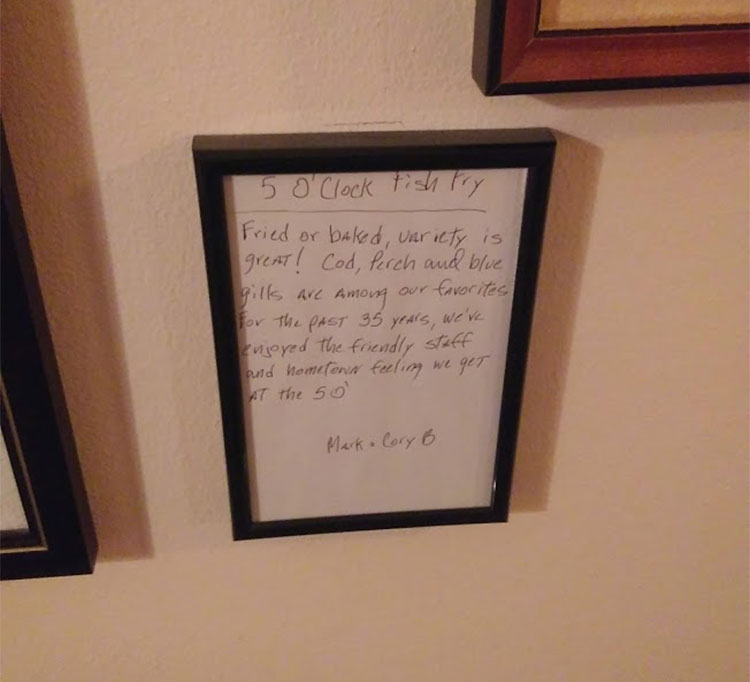 5 O'Clock Fish Fry
Fried or baked, variety is
great! Cod, Perch and blue
gills are among our favorites
For the past 35 years, we've
enjoyed the friendly staff
and hometown feeling we get
at the 5 O'
Mark + Cory B